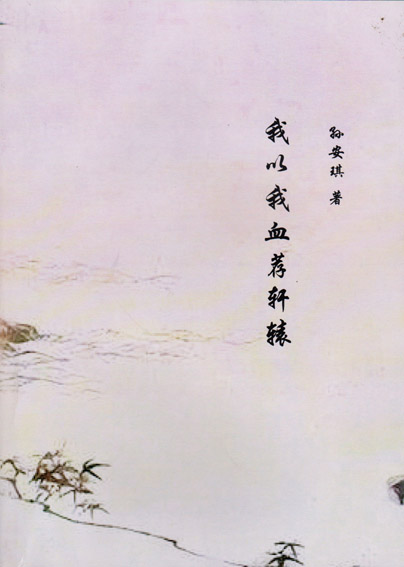 孙安琪 著
我以我血荐轩辕